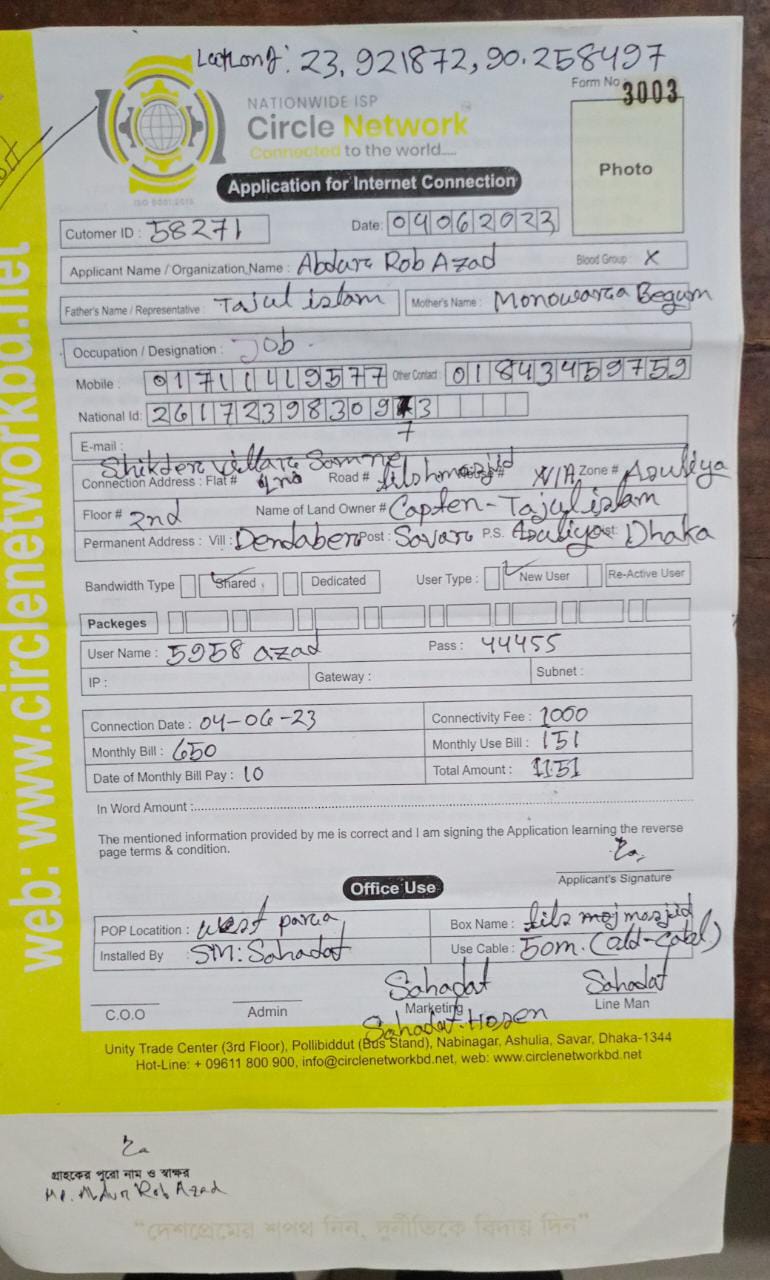 LatLong: 23.921872, 90.258497
Form No 3003
NATIONWIDE ISP
Circle Network
Connected to the world.....
ISO 9001:2015
Photo
Application for Internet Connection
Cutomer ID : 58271 Date: 04062023
Applicant Name / Organization Name : Abdur Rob Azad Blood Group : X
Father's Name / Representative : Tajul islam Mother's Name : Monowara Begum
Occupation / Designation : Job.
Mobile : 01711419577 Other Contact : 01843459759
National Id: 26172398309 3
7
E-mail :
Shikder Villar Samne
Connection Address : Flat # Road # N/A Zone # Asuliya
Floor # 2nd Name of Land Owner # Capten - Tajul islam
Permanent Address : Vill : Dendaber Post : Savar P.S. Asuliya Dist: Dhaka
Bandwidth Type Shared Dedicated User Type : New User Re-Active User
Packeges
User Name : 5958 azad Pass : 44455
IP : Gateway : Subnet :
Connection Date : 04-06-23 Connectivity Fee : 1000
Monthly Bill : 650 Monthly Use Bill : 151
Date of Monthly Bill Pay : 10 Total Amount : 1151
In Word Amount :
The mentioned information provided by me is correct and I am signing the Application learning the reverse
page terms & condition.
Applicant's Signature
Office Use
POP Locatition : West para Box Name : masjid
Installed By : SM: Sahadat Use Cable : 50m. (old-cabel)
Sahadat Sahadat
C.O.O Admin Marketing Line Man
Sahadat Hosen
Unity Trade Center (3rd Floor), Pollibiddut (Bus Stand), Nabinagar, Ashulia, Savar, Dhaka-1344
Hot-Line: + 09611 800 900, info@circlenetworkbd.net, web: www.circlenetworkbd.net
web: www.circlenetworkbd.net
গ্রাহকের পুরো নাম ও স্বাক্ষর
Md. Abdur Rob Azad
“দেশপ্রেমের শপথ নিন, দুর্নীতিকে বিদায় দিন”